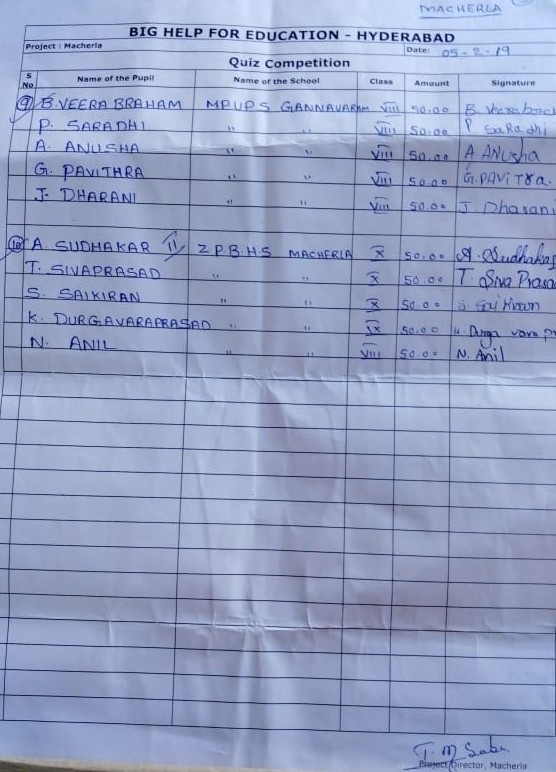 MACHERLA
BIG HELP FOR EDUCATION - HYDERABAD
Project : Macherla Date: 05-2-19
Quiz Competition
S No Name of the Pupil Name of the School Class Amount Signature
9 B. VEERA BRAHAM MPUPS GANNAVARAM VIII 50.00 B.
P. SARADHI " " VIII 50.00 P SaRadhi
A. ANUSHA " " VIII 50.00 A ANusha
G. PAVITHRA " " VIII 50.00 G. PAViTRa.
J. DHARANI " " VIII 50.00 J. Dharani
10 A. SUDHAKAR 11 Z P.B.H.S MACHERLA X 50.00 A. Sudhakar
T. SIVAPRASAD " " X 50.00 T. Siva Prasa
S. SAIKIRAN " " X 50.00 S. Sai
K. DURGAVARAPRASAD " " IX 50.00 K. Durga vara pr
N. ANIL " " VIII 50.00 N. Anil
T. M
Project Director, Macherla